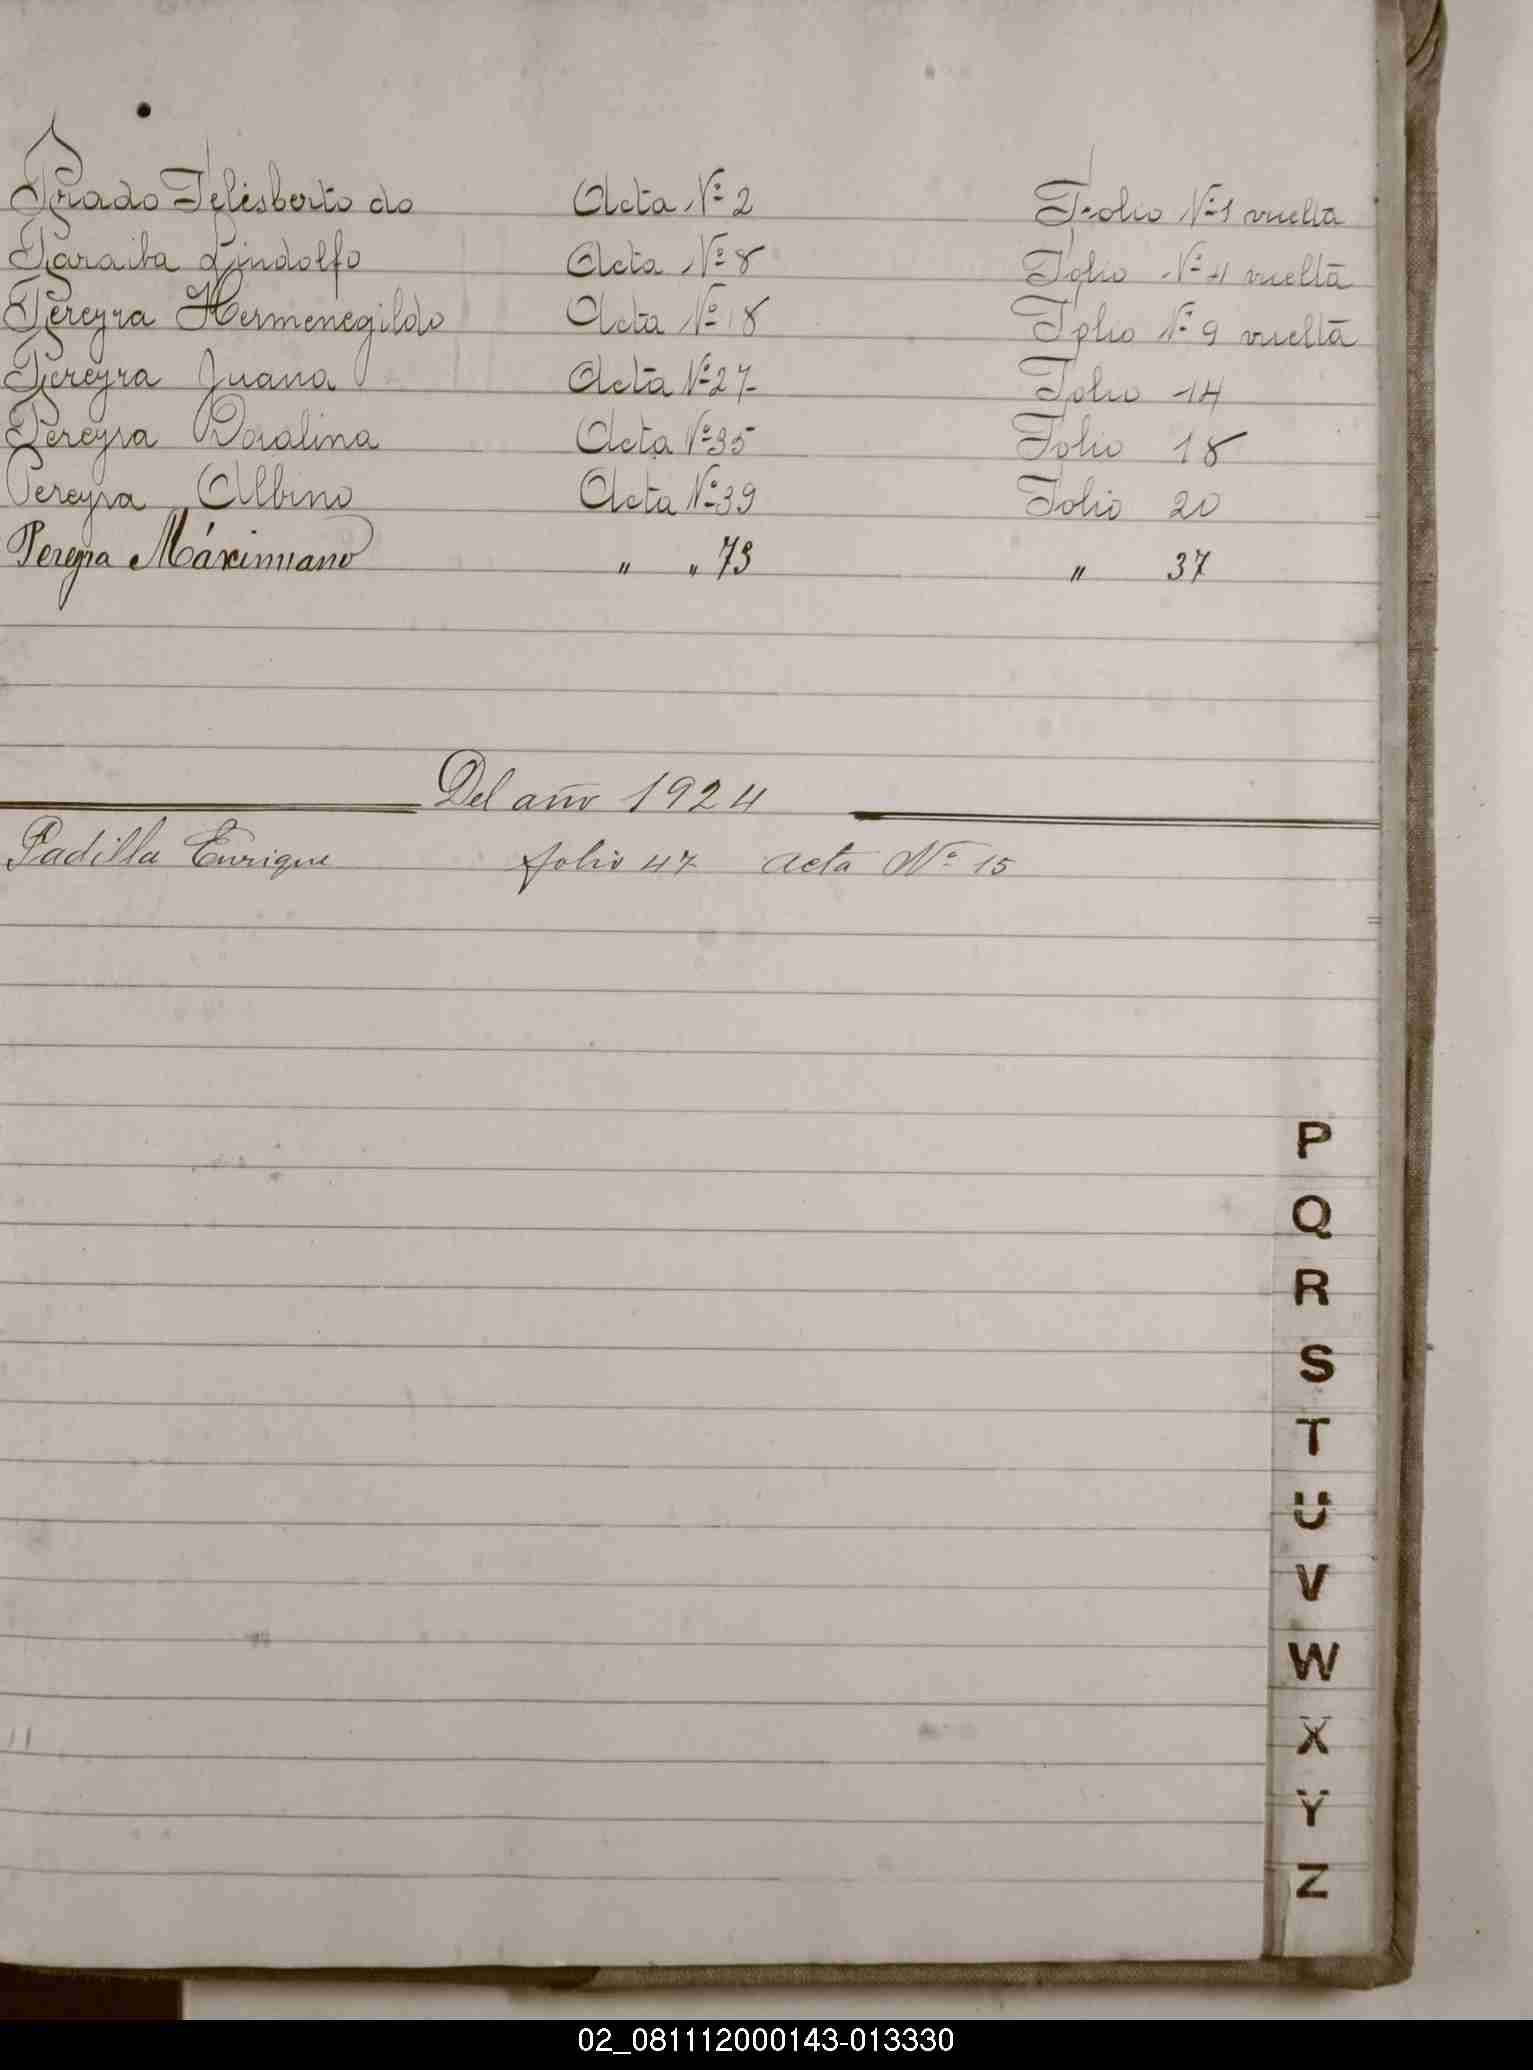 Prado Felisberto do Acta Nº 2 Folio Nº 1 vuelta
Paraiba Lindolfo Acta Nº 8 Folio Nº 4 vuelta
Pereyra Hermenegildo Acta Nº 18 Folio Nº 9 vuelta
Pereyra Juana Acta Nº 27 Folio 14
Pereyra Doralina Acta Nº 35 Folio 18
Pereyra Albino Acta Nº 39 Folio 20
Pereyra Máximiano " " 73 " 37
Del año 1924
Padilla Enrique folio 47 acta Nº 15
P
Q
R
S
T
U
V
W
X
Y
Z
02_081112000143-013330